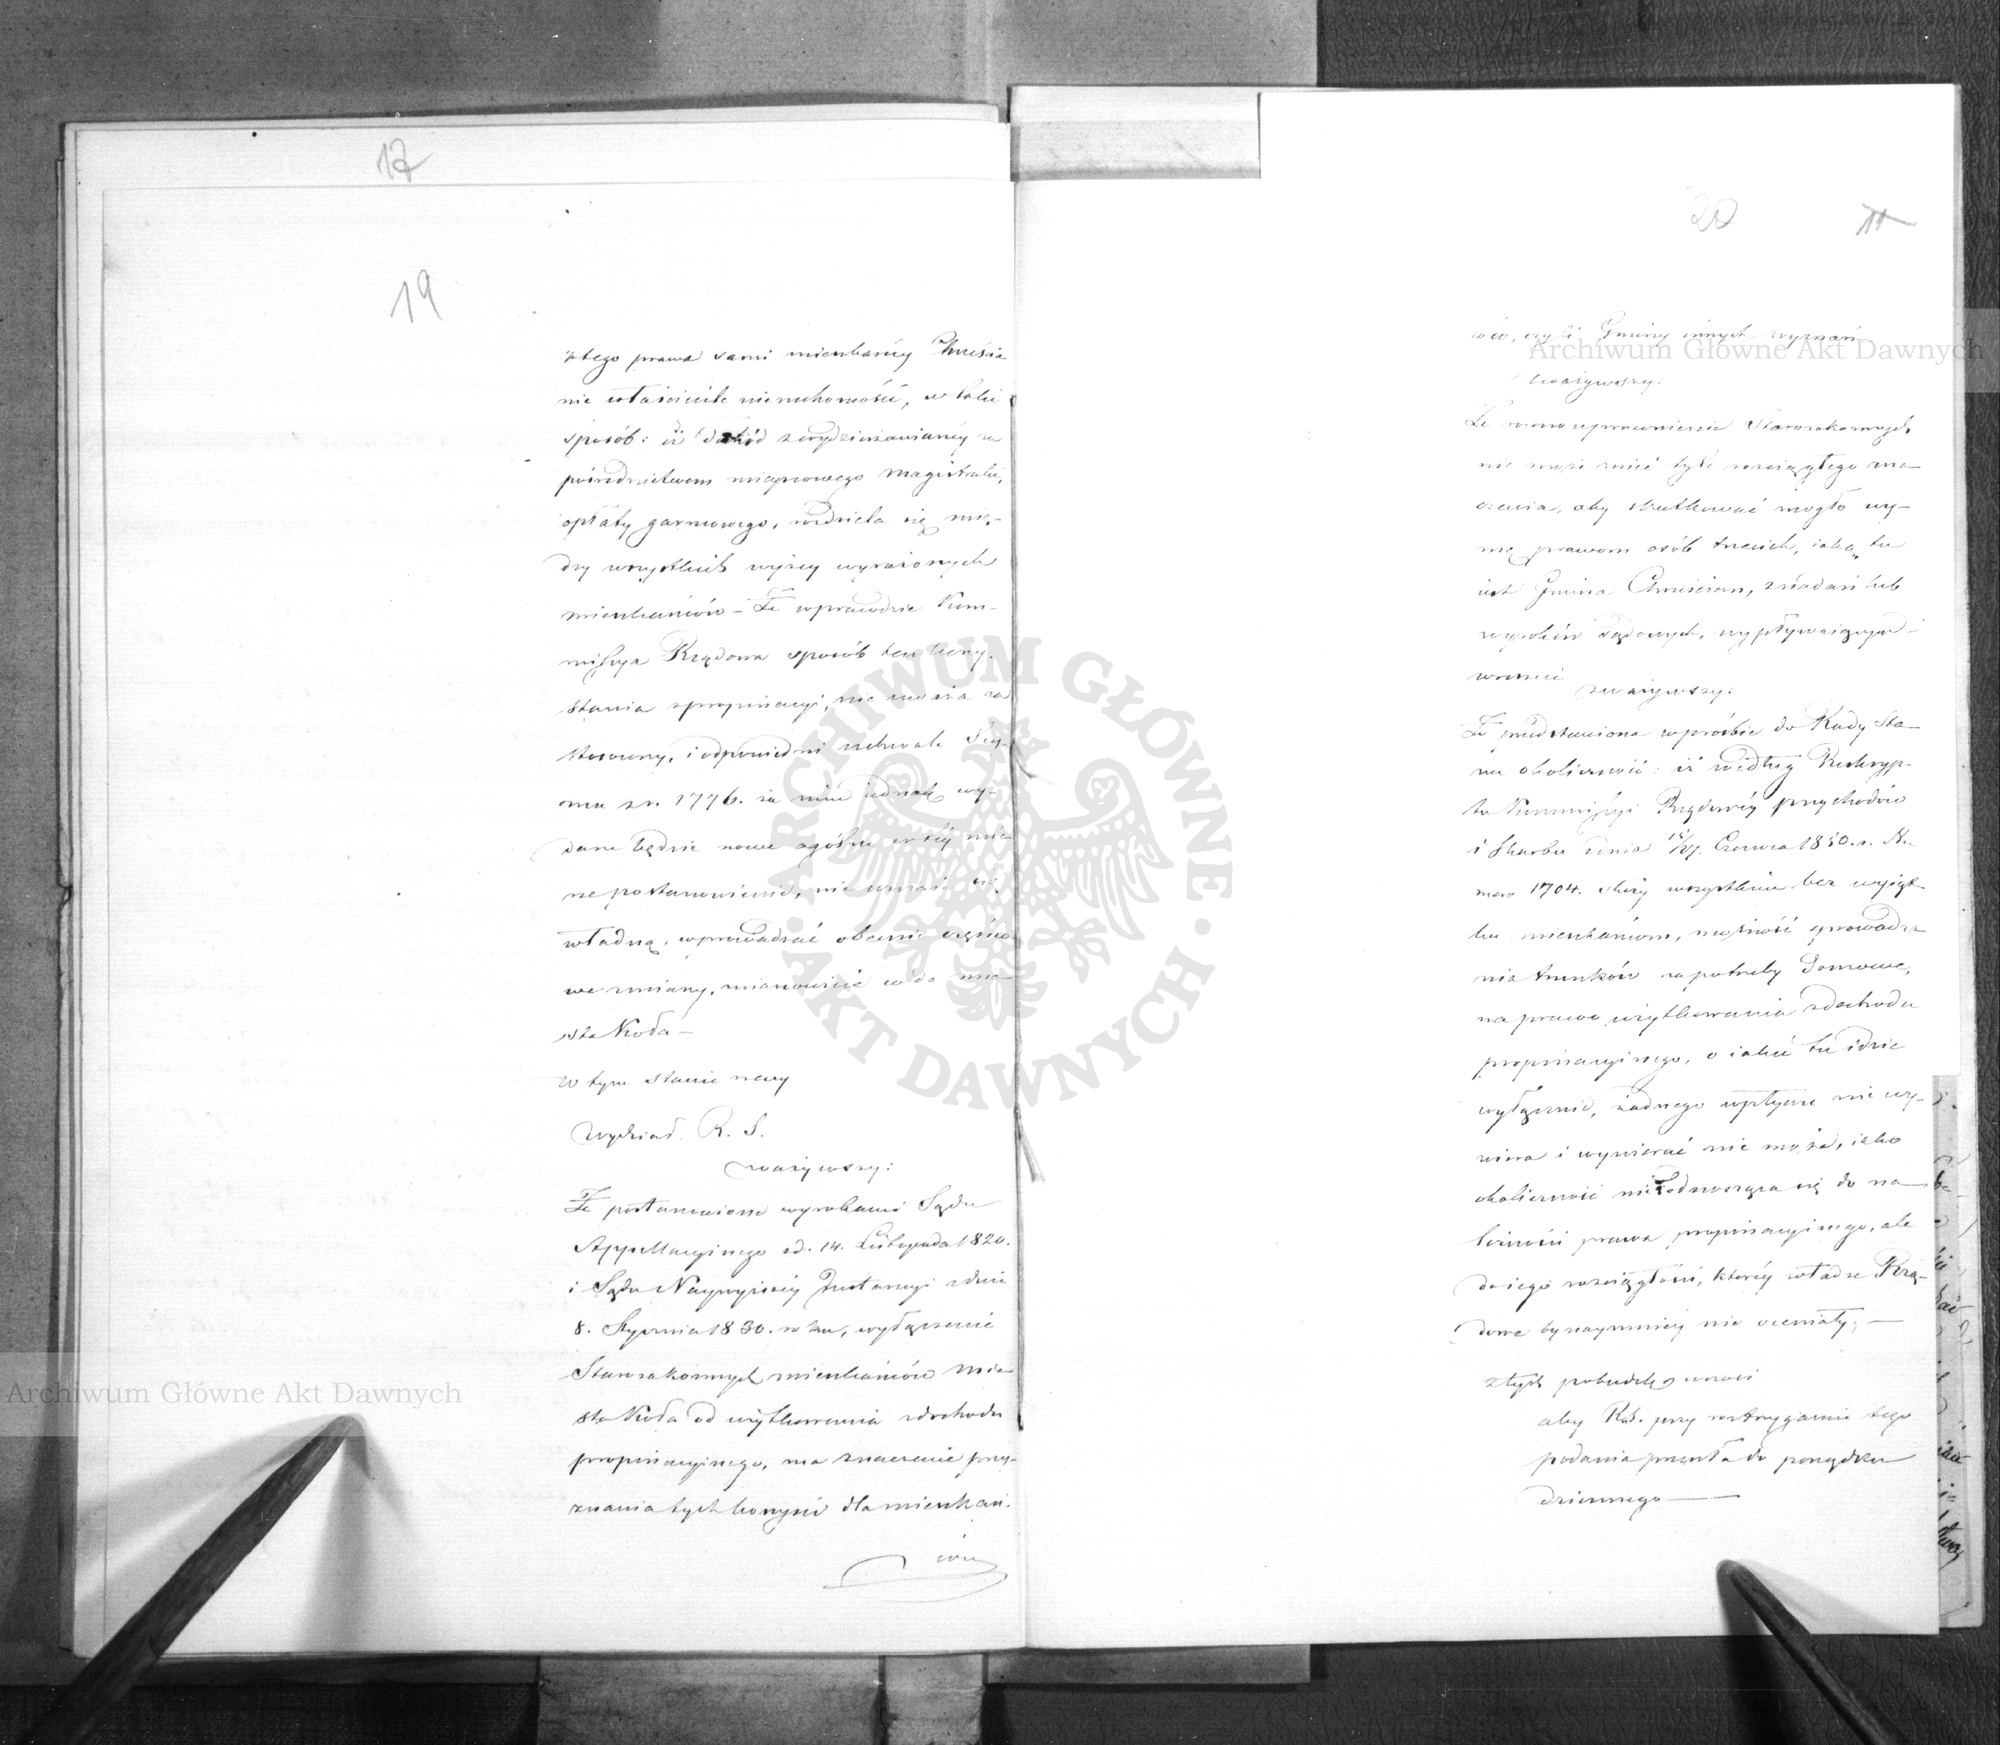 17
19
z tego prawa sami mieszkańcy Chrześcia
nie właściciele nieruchomości, w taki
sposób: iż dochód z wydzierżawianéy za
pośrednictwem miejscowego Magistratu,
opłaty garncowego, rozdziela się mię-
dzy wszystkich wyżey wyrażonych
mieszkańców – Że wprawdzie Kom-
missya Rządowa sposób ten korzy-
stania z propinacyi, nie uważa za
stosowny, i odpowiedni uchwale Sey-
mu z r. 1776. że nim jednak wy-
dane będzie nowe ogólne w téy mie
rze postanowienie, nie uznaie się
władną, wprowadzać obecnie częścio
we zmiany, mianowicie co do mia-
sta Koła –
W tym stanie rzeczy
Wydział R. S.
zważywszy:
Że postanowione wyrokami Sądu
Appellacyjnego z d. 14. Listopada 1820.
i Sądu Naywyższéy Instancyi z dnia
8. Stycznia 1830. roku, wyłączenie
Starozakonnych mieszkańców mia
sta Koła od użytkowania z dochodu
propinacyjnego, ma znaczenie przy-
znania tych korzyści dla mieszkań-
ców
20
11
ców, czyli Gminy innych wyznań
zważywszy:
Że równouprawnienie Starozakonnych
nie może mieć tyle rozciągłego zna
czenia, aby skutkować mogło uy-
mę prawom osób trzecich, iaką tu
iest Gmina Chrześcian, z nadań lub
wyroków Sądowych, wypływaiącym –
wreszcie
zważywszy:
Że przedstawiona w prośbie do Rady Sta-
nu okoliczność: iż według Reskryp-
tu Kommissyi Rządowéy przychodów
i Skarbu z dnia 15/27. Czerwca 1850. r. Nu
mero 1704. służy wszystkim bez wyjąt-
ku mieszkańcom, możność sprowadza
nia trunków na potrzeby Domowe,
na prawo użytkowania z dochodu
propinacyinego, o iakie tu idzie
wyłącznie, żadnego wpływu nie wy-
wiera i wywierać nie może, iako
okoliczność nie odnosząca się do na
leżności prawa propinacyinego, ale
do iego rozciągłości, któréy władze Rzą-
dowe bynaymniéy nie oceniały; —
z tych pobudek wnosi
aby Rad. przy rostrzyganiu tego
podania przeszła do porządku
dziennego —
Archiwum Główne Akt Dawnych
ARCHIWUM GŁÓWNE
· AKT DAWNYCH ·
Archiwum Główne Akt Dawnych